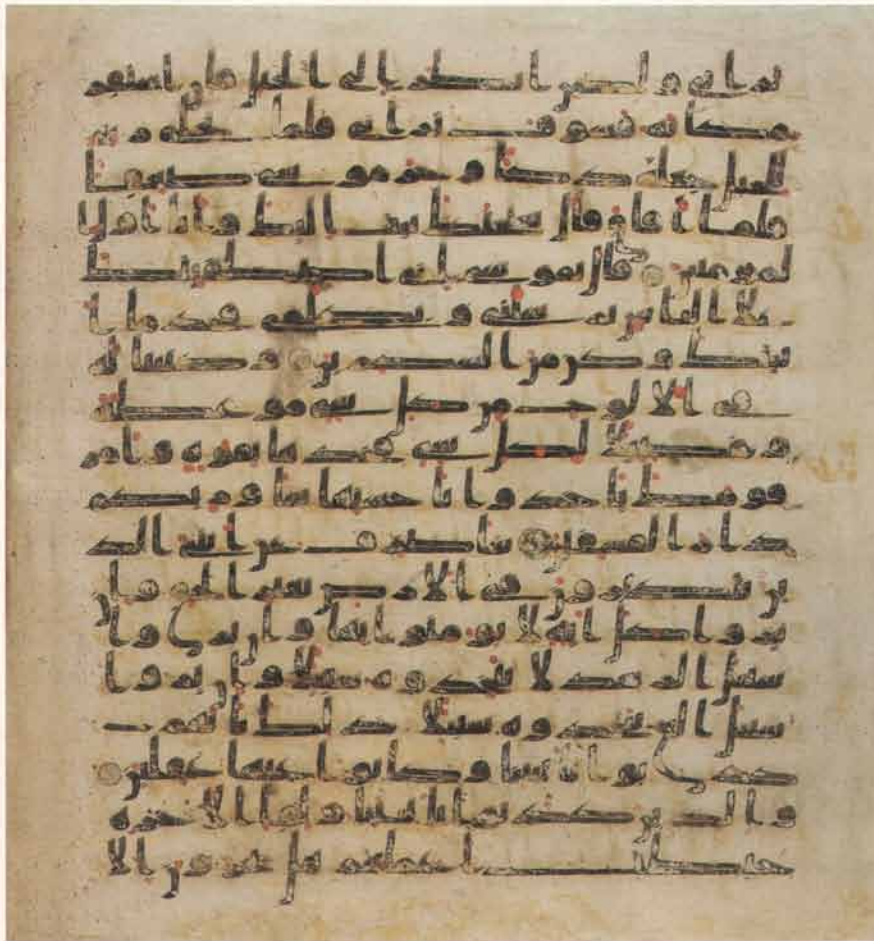 ترىنى ولكن انظر الى الجبل فان استقر
مكانه فسوف ترىنى فلما تجلى ربه
للجبل جعله دكا وخر موسى صعقا
فلما افاق قال سبحنك تبت اليك وانا اول ا
لمومنين قال يموسى انى اصطفيتك
على الناس برسلتى وبكلمى فخذ ما ا
تيتك وكن من الشكرين وكتبنا له
فى الالواح من كل شى موعظة
وتفصيلا لكل شى فخذها بقوة وامر
قومك ياخذوا باحسنها ساوريكم
دار الفسقين ساصرف عن ايتى الذ
ين يتكبرون فى الارض بغير الحق وان
يروا كل اية لا يومنوا بها وان يروا
سبيل الرشد لا يتخذوه سبيلا وان يروا
سبيل الغى يتخذوه سبيلا ذلك بانهم
كذبوا بايتنا وكانوا عنها غفلين
والذين كذبوا بايتنا ولقا الاخرة
حبطت اعملهم هل يجزون الا